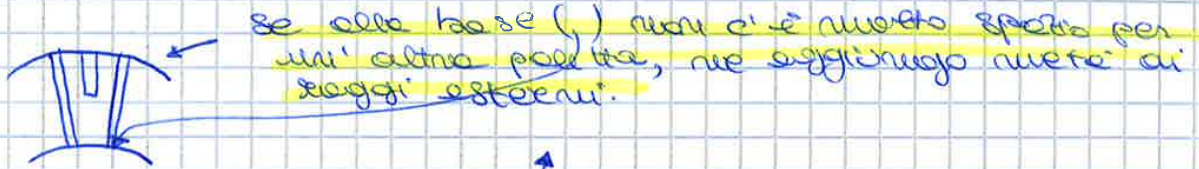 se alla base (,) non c'è molto spazio per
un'altra paletta, ne aggiungo metà ai
raggi esterni.